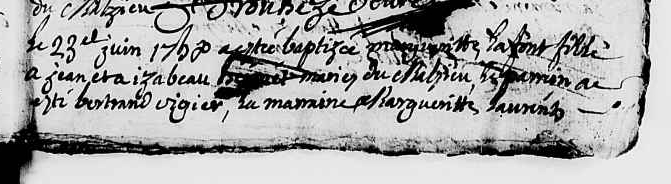 du Malzieu
le 23e juin 17 a esté baptisée margueritte lafont fille
a jean et a izabeau maries du Malzieu, le parrin ae
esté bertrand vigier, la marraine Margueritte laurens